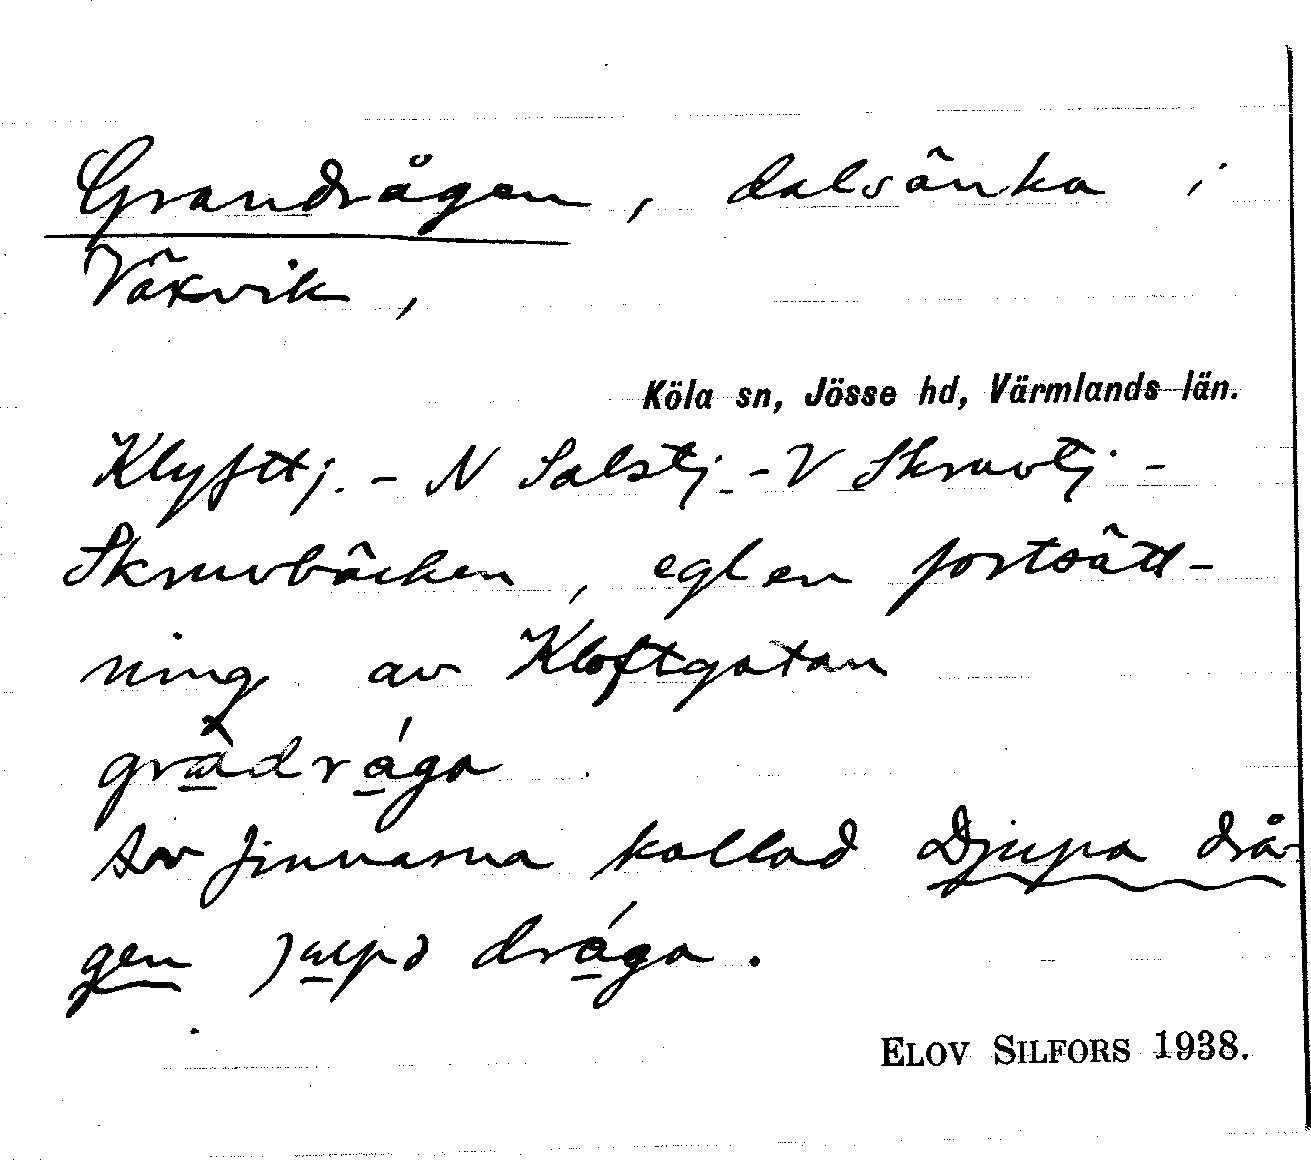 Grandrågen, dalsänka i
Väkvik,
Köla sn, Jösse hd, Värmlands län.
Klyfttj. - N Salstj. - V Skruvtj -
Skruvbäcken, egl en fortsätt-
ning av Kloftgatan
grädråga
Av finnarna kallad Djupa drå-
gen jupə dråga.
ELOV SILFORS 1938.